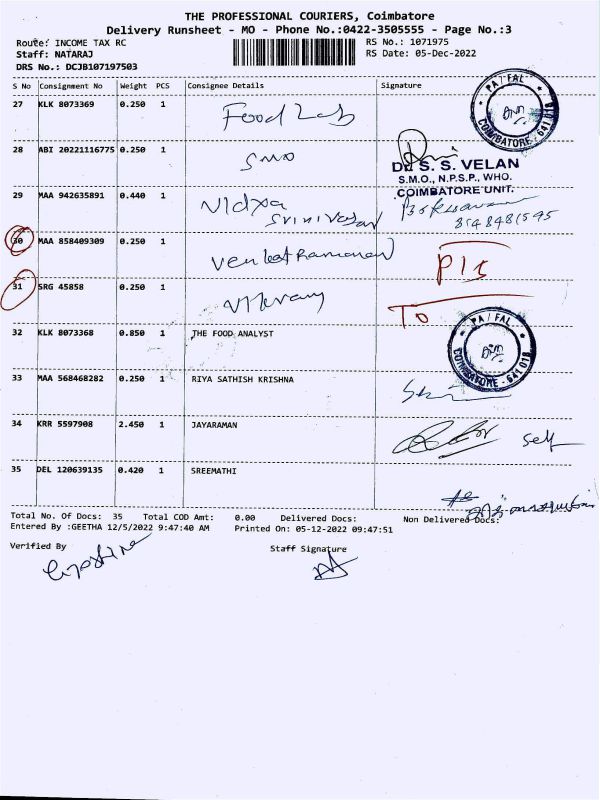 THE PROFESSIONAL COURIERS, Coimbatore
Delivery Runsheet - MO - Phone No.:0422-3505555 - Page No.:3
Route: INCOME TAX RC
RS No.: 1071975
Staff: NATARAJ
RS Date: 05-Dec-2022
DRS No.: DCJB107197503
S No Consignment No Weight PCS Consignee Details Signature
27 KLK 8073369 0.250 1 Food Lab
PA/FAL COIMBATORE - 641 018
28 ABI 20221116775 0.250 1 SMO
Dr. S. S. VELAN
S.M.O., N.P.S.P., WHO.
COIMBATORE UNIT.
29 MAA 942635891 0.440 1 Vidya Srinivasan
30 MAA 858409309 0.250 1 Venkatramanan
31 SRG 45858 0.250 1
TO
32 KLK 8073368 0.850 1 THE FOOD ANALYST
PA/FAL COIMBATORE - 641 018
33 MAA 568468282 0.250 1 RIYA SATHISH KRISHNA
34 KRR 5597908 2.450 1 JAYARAMAN self
35 DEL 120639135 0.420 1 SREEMATHI
Total No. Of Docs: 35 Total COD Amt: 0.00 Delivered Docs: Non Delivered Docs:
Entered By :GEETHA 12/5/2022 9:47:40 AM Printed On: 05-12-2022 09:47:51
Verified By Staff Signature